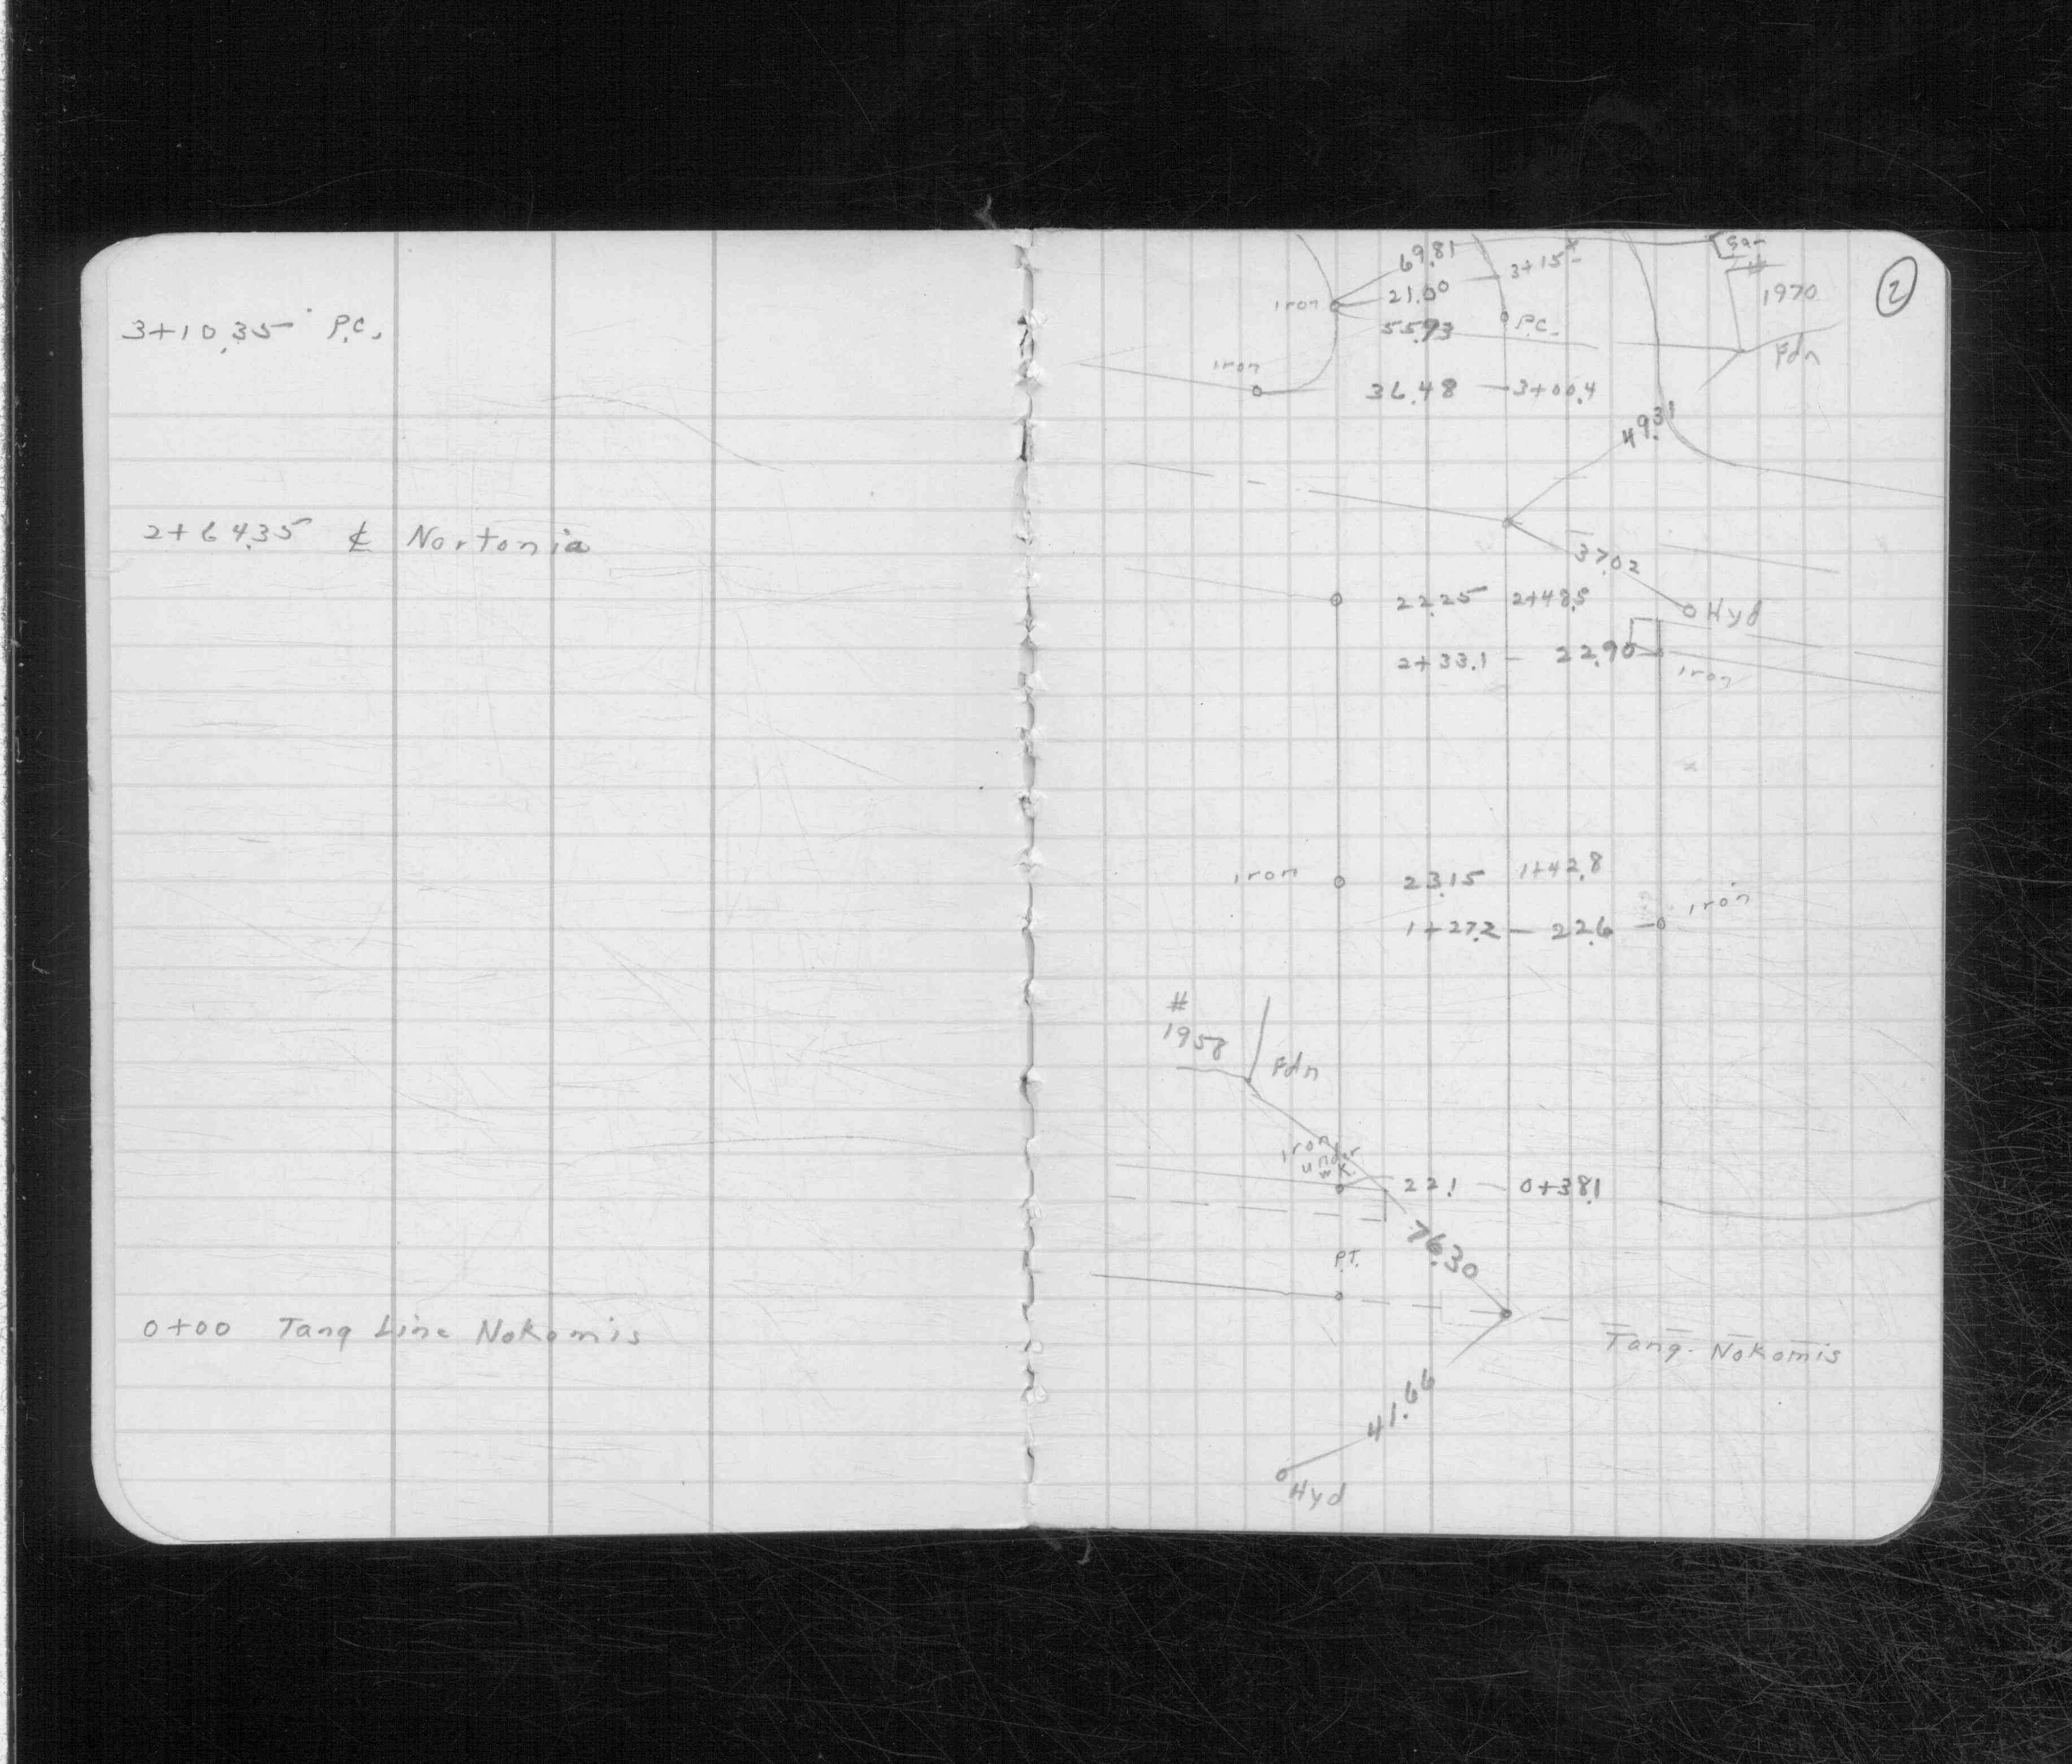 3+10.35 P.C.
2+64.35 ℄ Nortonia
0+00 Tang Line Nokomis
2
69.81
3+15±
Gar
#
1970
iron
21.00
55.93
P.C.
Fdn
iron
36.48 - 3+00.4
49.31
37.02
Hyd
22.25 2+48.5
2+33.1 - 22.90
iron
iron
23.15 1+42.8
1+27.2 - 22.6
iron
#
1958
Fdn
iron
under
wk.
22.1 - 0+38.1
76.30
P.T.
Tang. Nokomis
41.66
Hyd